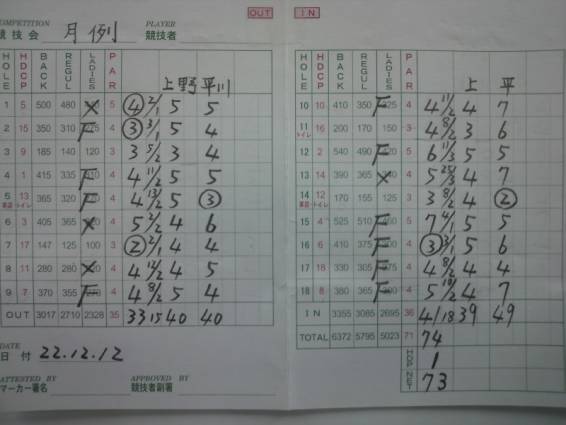 OUT
IN
COMPETITION
PLAYER
競技会 月例 競技者
HOLE HDCP BACK REGUL LADIES PAR 上野 平川
1 5 500 480 5 ④ 2/1 5 5
2 15 350 310 F 4 ③ 3/1 5 4
3 9 185 140 120 3 3 5/2 3 4
4 1 415 335 F 4 4 11/2 5 5
5 13 365 320 F 4 4 13/2 5 ③
茶店・トイレ
6 3 405 365 4 5 2/2 4 6
7 17 147 125 100 3 ② 2/1 4 4
8 11 280 280 4 4 12/2 4 5
9 7 370 355 F 4 4 8/2 5 4
OUT 3017 2710 2328 35 33 15 40 40
DATE
日付 22.12.12
ATTESTED BY
APPROVED BY
マーカー署名
競技者副署
HOLE HDCP BACK REGUL LADIES PAR 上 平
10 10 410 350 F 4 4 11/2 4 7
11 16 200 170 150 3 4 8/2 3 6
トイレ
12 2 540 490 F 5 6 11/3 5 5
13 14 390 365 4 5 25/3 4 7
14 12 170 155 125 3 3 8/2 4 ②
茶店・トイレ
15 4 525 510 F 5 7 4/1 5 5
16 6 410 375 F 4 ③ 3/1 5 6
17 18 330 305 F 4 4 8/2 4 4
18 8 380 385 F 4 5 10/2 4 7
IN 3355 3085 2695 36 41 18 39 49
TOTAL 6372 5795 5023 71 74
HDP 1
NET 73